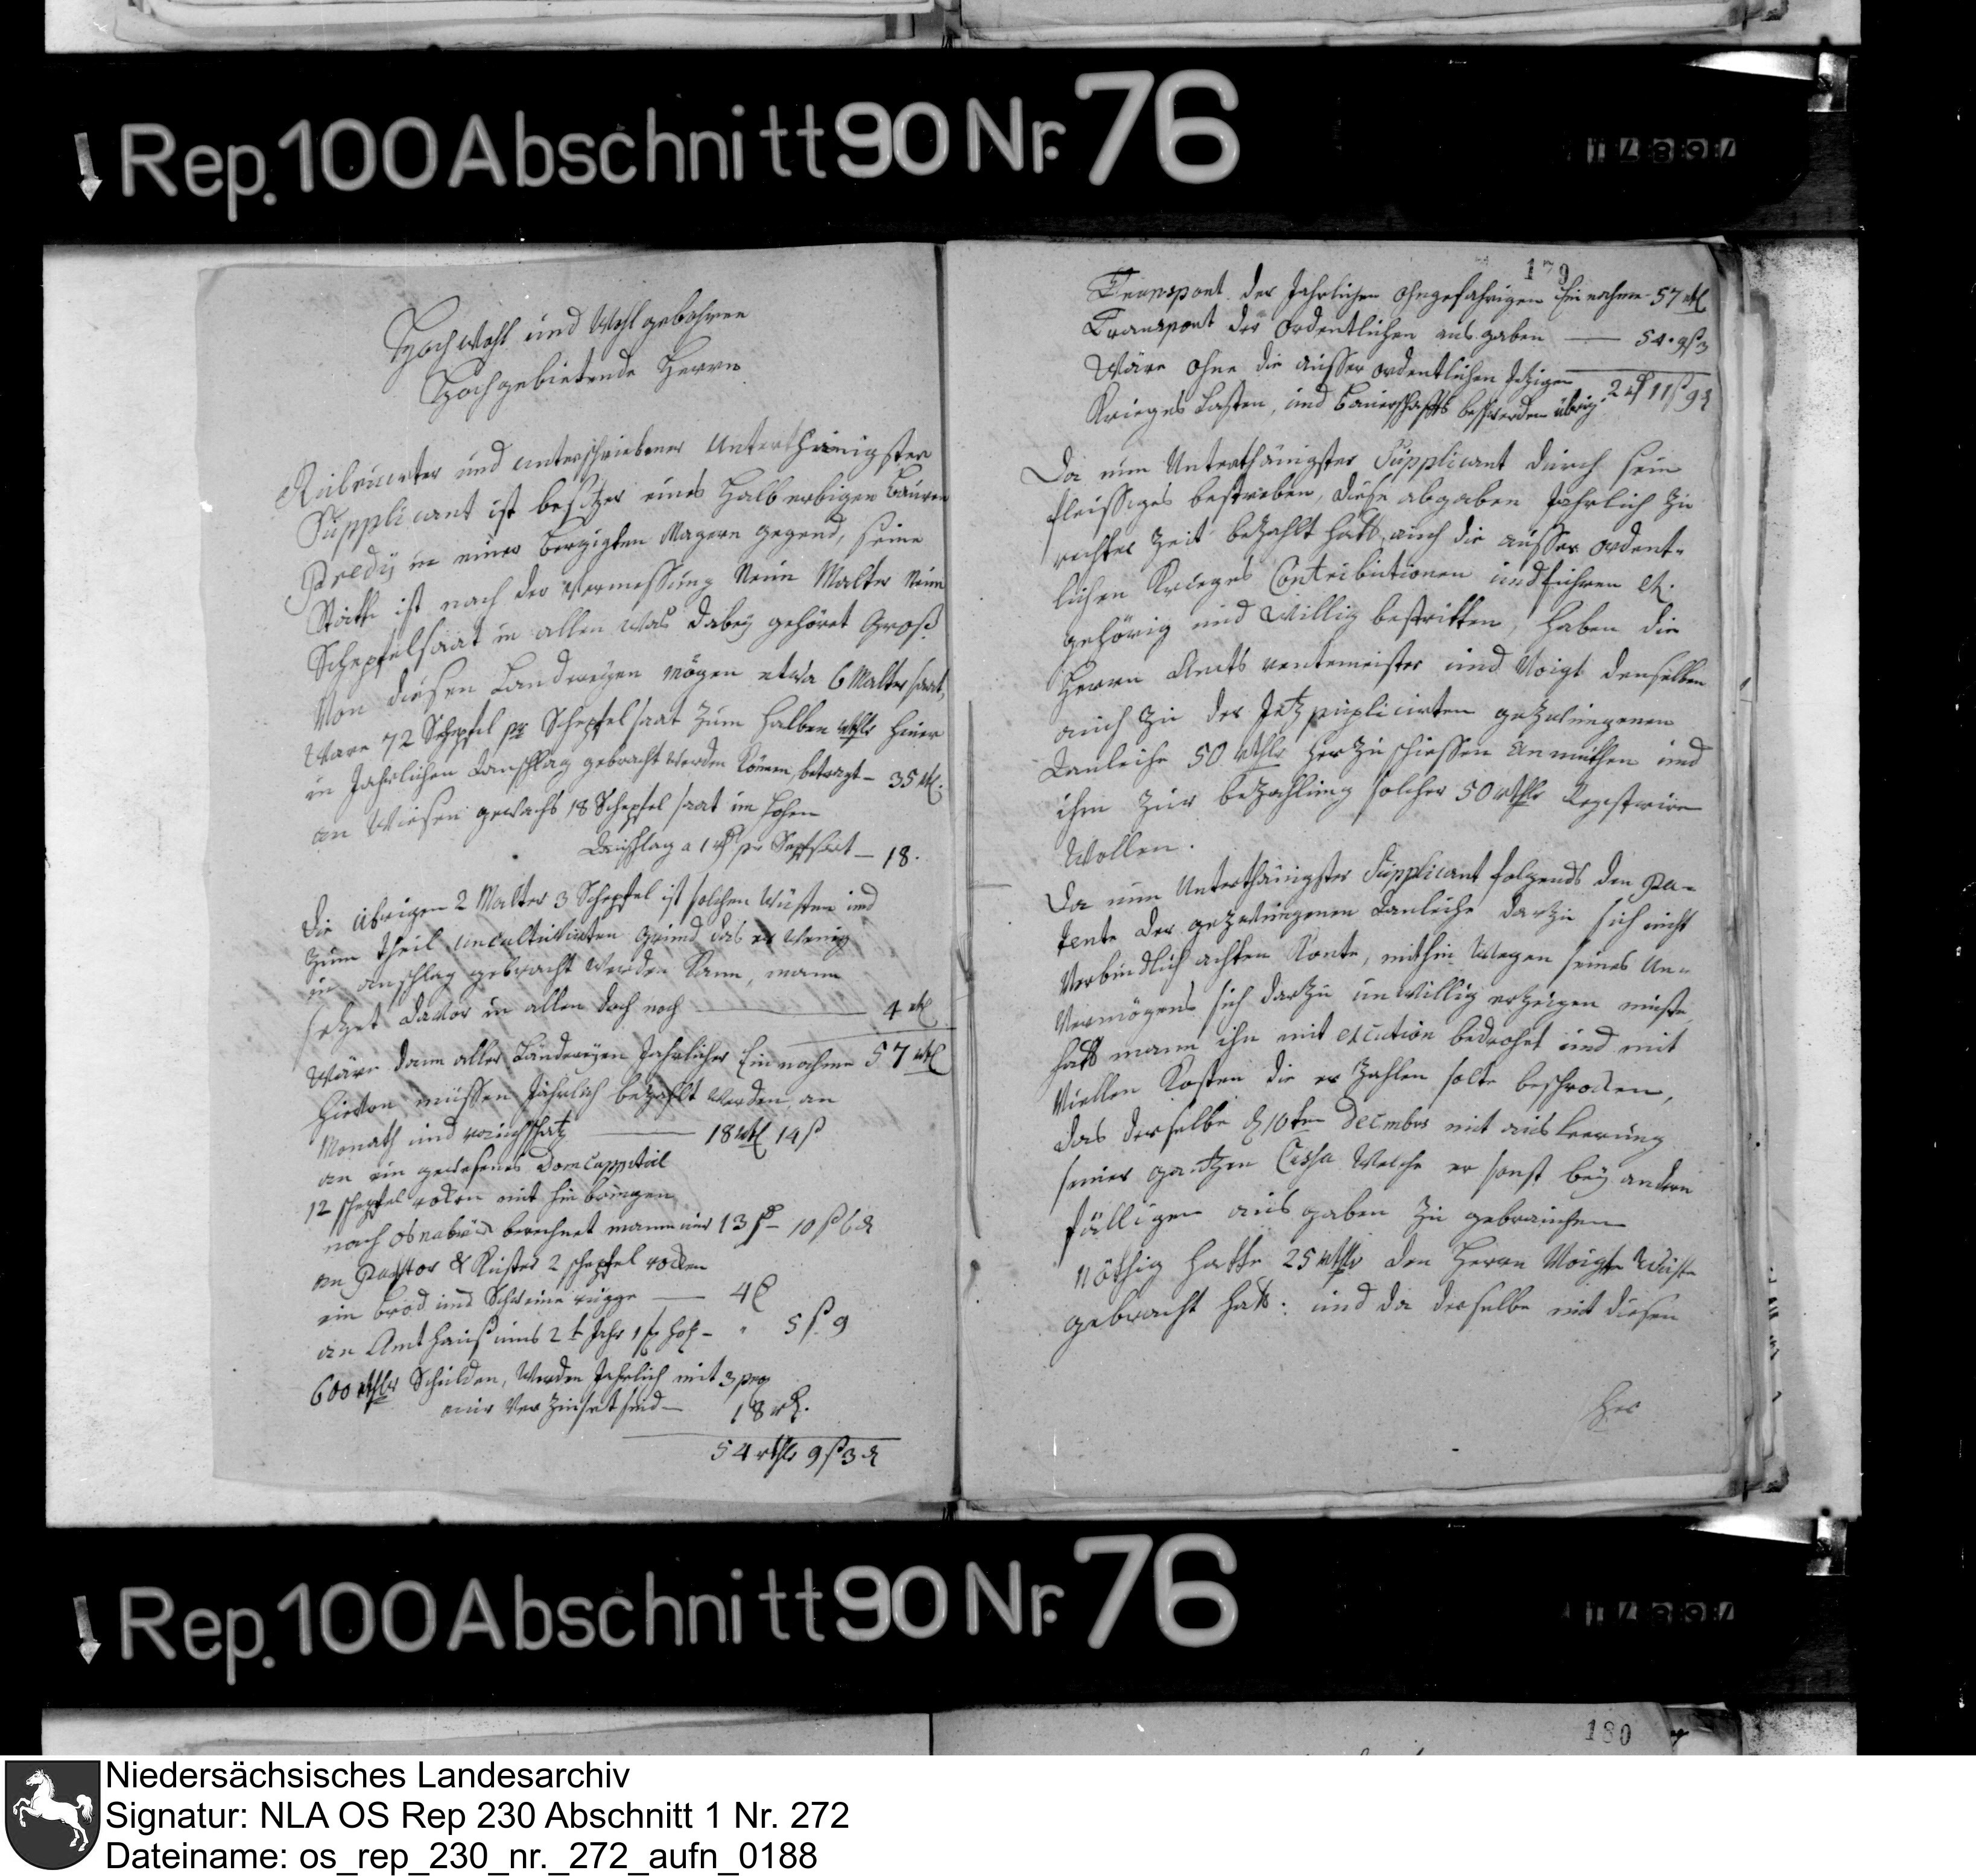 Rep. 100 Abschnitt 90 Nr. 76
Hoch Wohl und Wohlgebohrne
Hochgebietende Herrn
Rubricirter und unterschriebener Unterthänigster
Supplicant ist besitzer eines Halb erbigen Bauren
in einer Bergigten Magern gegend, seine
Stätte ist nach der Vermessung Neun Malter Neun
Schepfelsaat in allen was dabey gehöret Groß
Von diesen Landereyen mögen etwa 6 Malter saat,
Ware 72 Schepfel pr Schepfelsaat zum halben rthlr hier
in Jahrlichen Anschlag gebracht werden können, betragt – 35 rthl.
an Wiesen gewachs 18 Schepfel saat im hohen
Anschlag a 1 rthl pr – 18.
Die übrigen 2 Malter 3 Schepfel ist solchen Wüsten und
zum theil uncultivirten grund das er wenig
in anschlag gebracht werden kann, mann
setzet davor in allen doch noch — 4 rthl
Wäre dann aller Länderyen Jahrlicher Einnahme 57 rthl
Hievon müssen Jährlich bezahlt werden, an
Monath und rauchschatz — 18 rthl 14 ß
an ein gewesenes DomCappittul
12 schepfel roken mit hin bringen
nach osnabrück berechnet mann nur 13 rthl – 10 ß 6 d
an Pastor & Küster 2 schepfel rocken
ein brod und Schweine rügge — 4
an Amthauß ums 2t Jahr – " 5 ß 9
600 rthlr Schulden, werden Jahrlich mit 3 proc
nur verzinset sind — 18 rthl.
54 rthlr 9 ß 3 d
179
Transport der Jahrlichen ohngefahrigen Einnahme – 57 rthl
Transport der ordentlichen ausgaben — 54 . 9 ß 3
Wäre ohne die ausser ordentlichen jetzigen
Krieges Lasten, und Bauerschafts beschwerden übrig 2 rthl 11 ß 9 d
Da nun Unterthänigster Supplicant durch sein
fleissiges bestreben, diese abgaben Jahrlich zu
rechter Zeit bezahlt hatt, auch die ausser ordent-
lichen Krieges Contributionen und fuhren etc.
gehörig und Willig bestritten, haben die
Herrn Amts rentemeister und Voigt denselben
auch zu der Jetz puplicirten gezwungenen
Anleihe 50 rthlr herzu schiessen anmuthen und
ihm zur bezahlung solcher 50 rthlr
Wollen.
Da nun Unterthänigster Supplicant folgends den Pa-
tente der gezwungenen Anleihe darzu sich nicht
Verbindlich achten Konte, mithin Wegen seines Un-
Vermögens sich darzu unwillig erzeigen muste,
hatt mann ihn mit execution bedrohet und mit
Viellen Kosten die er zahlen solte beschrocken,
das derselbe d 10ten Decmber mit ausleerung
seiner gantzen Cassa Welche er sonst bey andern
fälligen ausgaben zu gebrauchen
nöthig hatte 25 rthlr den Herrn Voigte Wüste
gebracht hatt: und da derselbe mit diesen
Rep. 100 Abschnitt 90 Nr. 76
180
Niedersächsisches Landesarchiv
Signatur: NLA OS Rep 230 Abschnitt 1 Nr. 272
Dateiname: os_rep_230_nr._272_aufn_0188